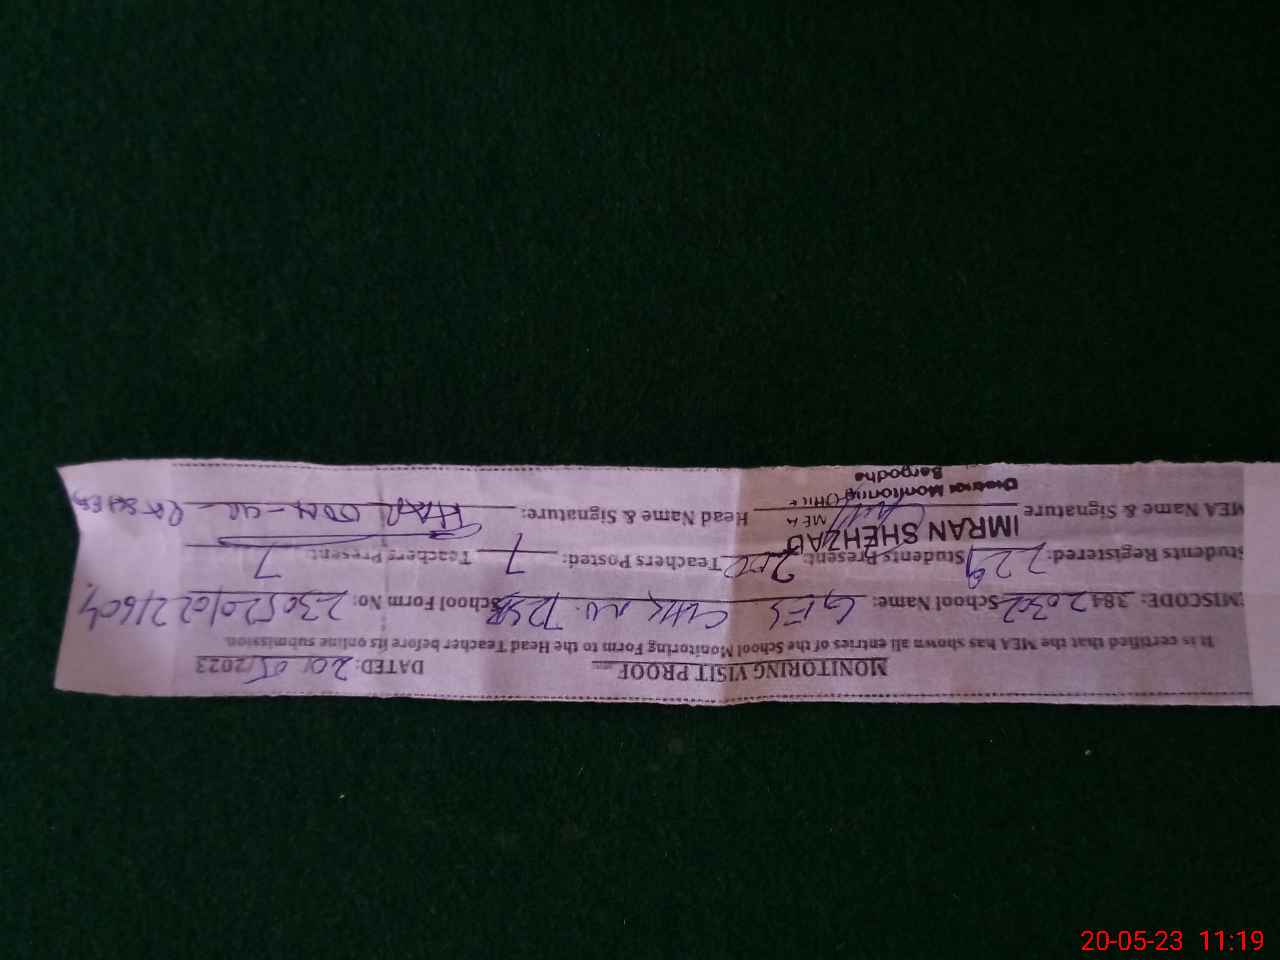 MONITORING VISIT PROOF DATED: 20/05/2023
It is certified that the MEA has shown all entries of the School Monitoring Form to the Head Teacher before its online submission.
MISCODE: 38420302 School Name: GES CHK NO. 72SB School Form No: 
Students Registered: 229 Students Present: Teachers Posted: 7 Teachers Present: 7
MEA Name & Signature IMRAN SHEHZAD Head Name & Signature:
MEA
District Monitoring Office
Sargodha
20-05-23 11:19